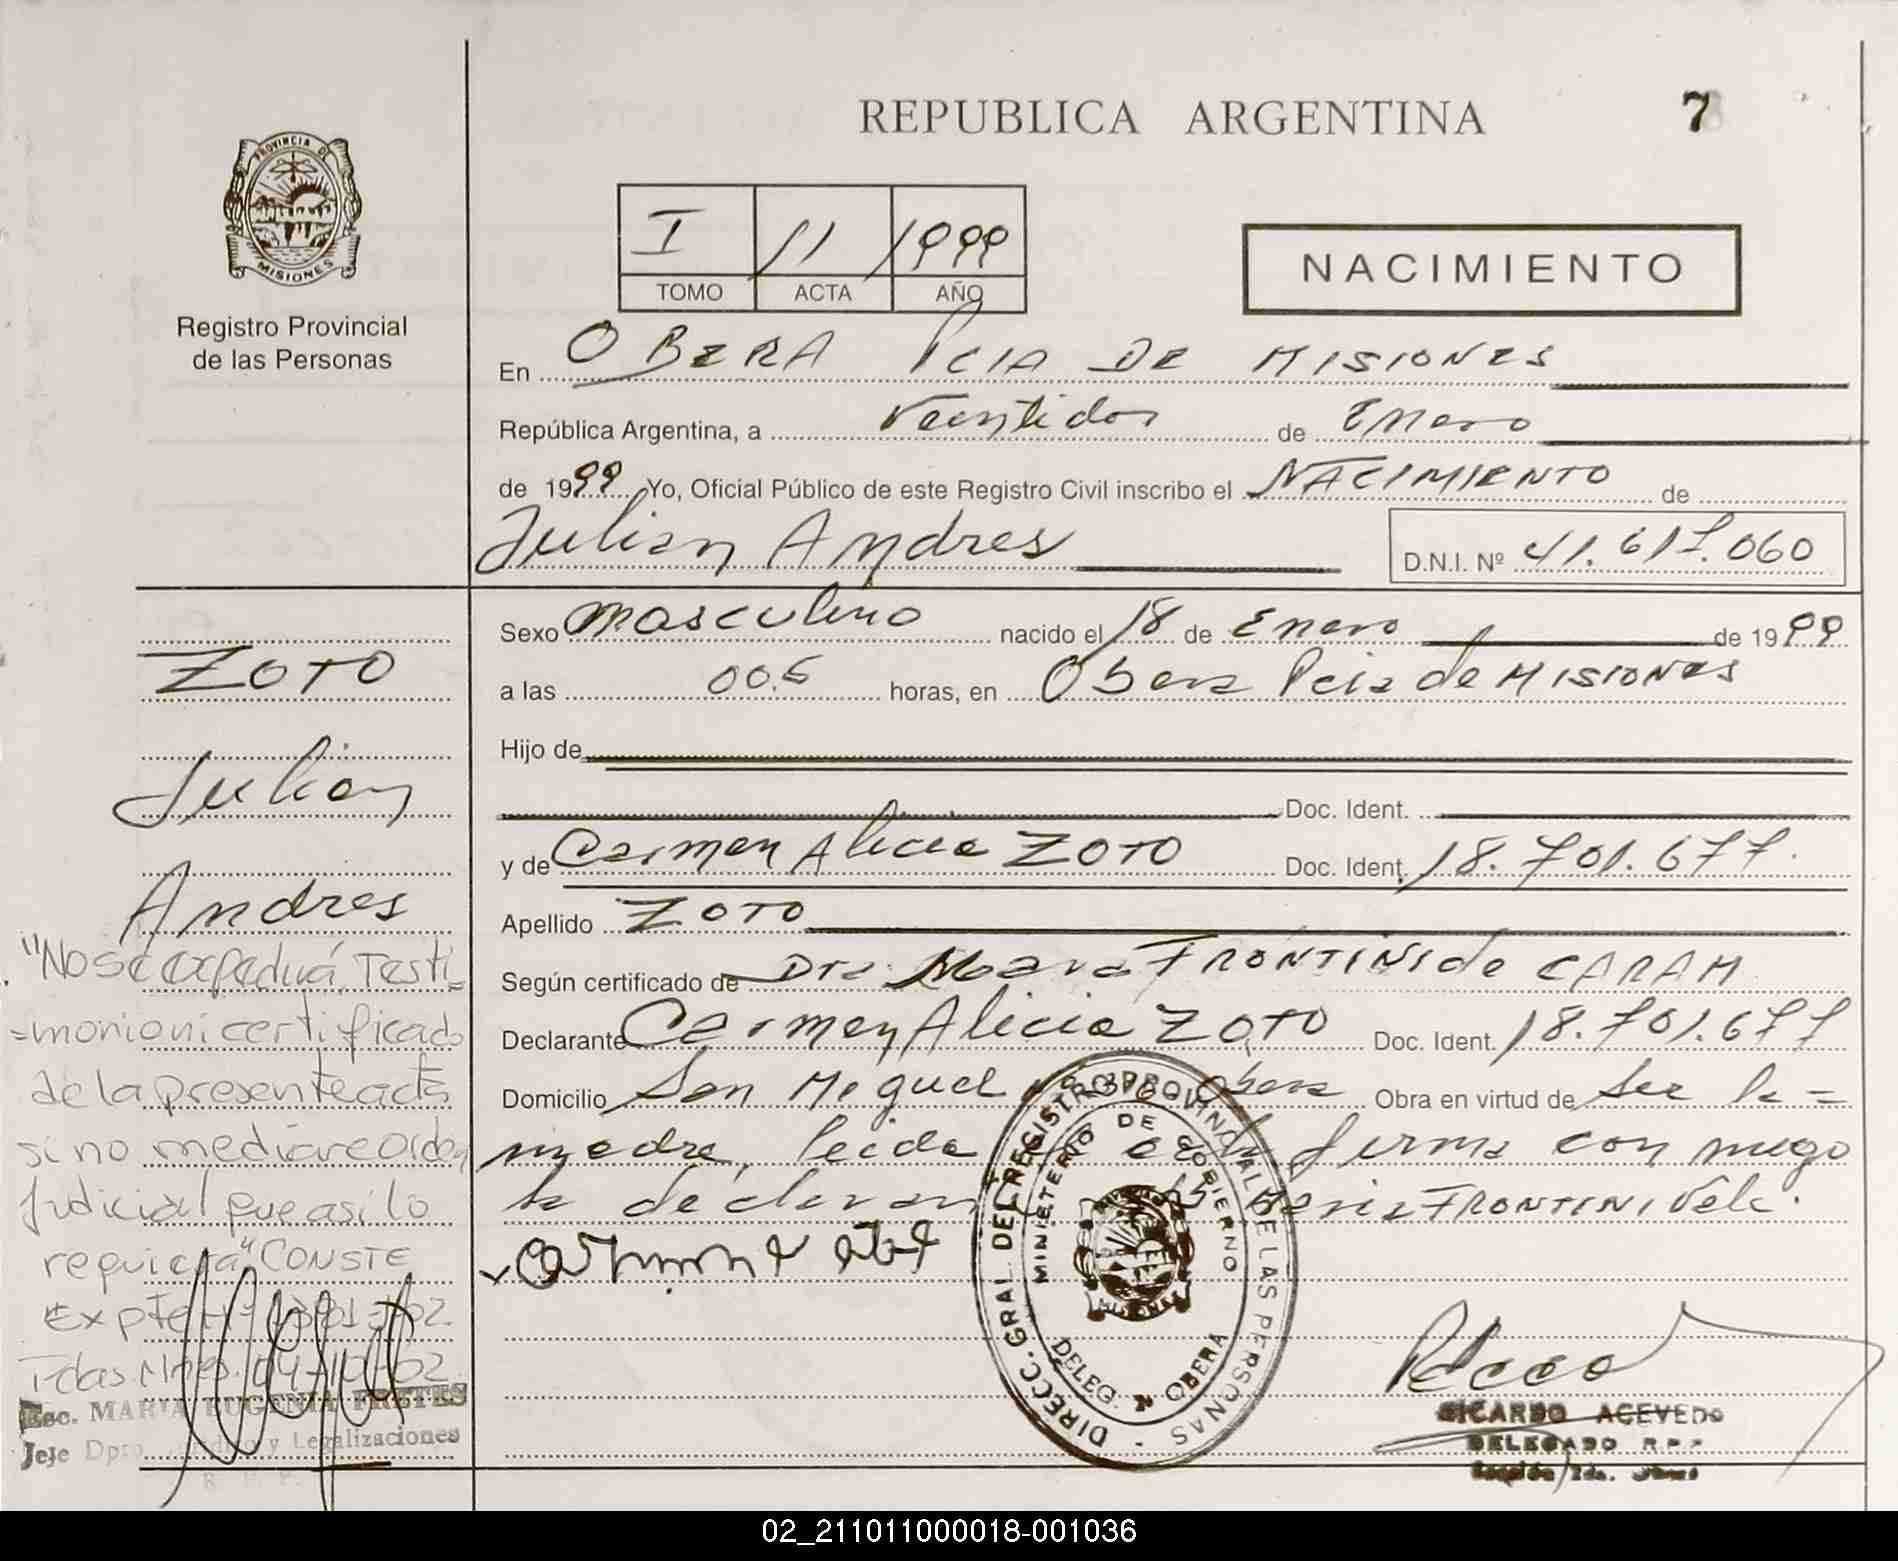 REPUBLICA ARGENTINA
7
PROVINCIA DE
MISIONES
Registro Provincial
de las Personas
I 11 1999
TOMO ACTA AÑO
NACIMIENTO
En OBERA PCIA DE MISIONES
República Argentina, a Veintidos de Enero
de 1999 Yo, Oficial Público de este Registro Civil inscribo el NACIMIENTO de
Julian Andres
D.N.I. Nº 41.617.060
Sexo masculino nacido el 18 de Enero de 1999
a las 00.5 horas, en Obera Pcia de MISIONES
Hijo de
Doc. Ident.
y de Carmen Alicia ZOTO Doc. Ident. 18.701.677.
Apellido ZOTO
Según certificado de Dra. FRONTINI de CARAM
Declarante Carmen Alicia ZOTO Doc. Ident. 18.701.677
Domicilio San Miguel Obera Obra en virtud de ser la=
madre, leida el acta firma con migo
la FRONTINI
ZOTO
Julian
Andres
"No se expedirá Testi=
=monio ni certificado
de la presente acta
si no mediare orden
Judicial que así lo
requiera" CONSTE
Expte
Pdas Mnes. 04-10-02.
Esc. MARIA EUGENIA FRETES
Jefe Dpto. y Legalizaciones
DIRECC. GRAL. DEL REGISTRO PROVINCIAL DE LAS PERSONAS
MINISTERIO DE GOBIERNO
MISIONES
DELEG. OBERA
RICARDO ACEVEDO
DELEGADO R.P.P
02_211011000018-001036